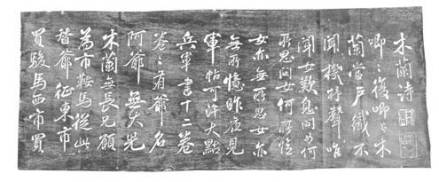 木蘭诗
唧〻復唧〻木
蘭當户織不
聞機杼聲唯
聞女歎息問女何
所思問女何所憶
女亦無所思女亦
無所憶昨夜見
軍帖可汗大點
兵軍書十二卷
卷〻有爺名
阿爺無大兒
木蘭無長兄願
為市鞍馬從此
替爺征東市
買駿馬西市買